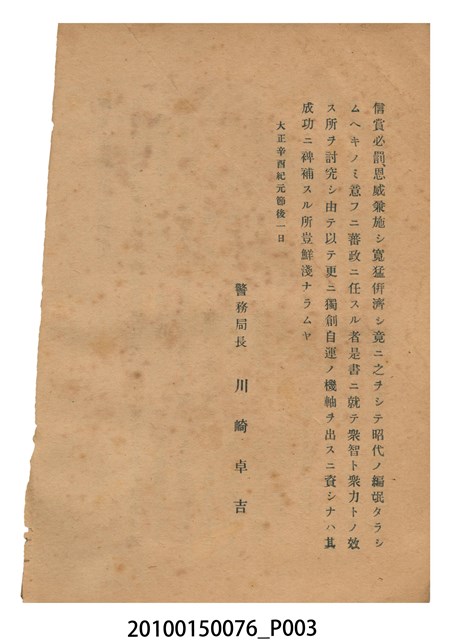 信賞必罰、恩威兼施シ寬猛併濟シ竟ニ之ヲシテ昭代ノ編氓タラシ
ムヘキノミ意フニ蕃政ニ任スル者是書ニ就テ衆智ト衆力トノ效
ス所ヲ討究シ由テ以テ更ニ獨創自運ノ機軸ヲ出スニ資シナハ其
成功ニ裨補スル所豈鮮淺ナラムヤ
大正辛酉紀元節後一日
警務局長 川崎卓吉
20100150076_P003